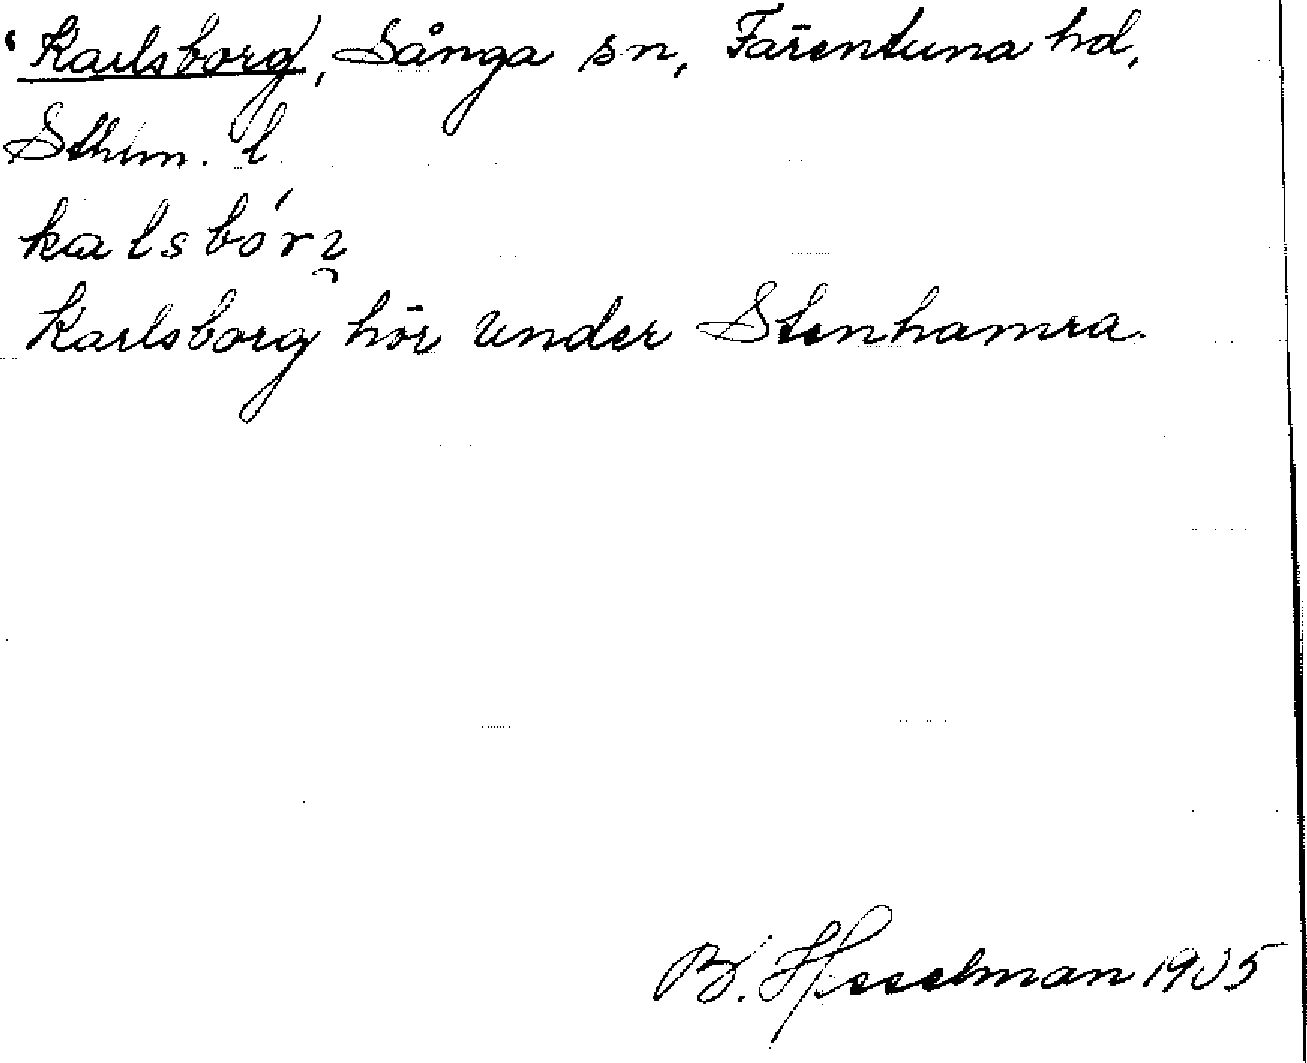 Karlsborg, Sånga sn, Färentuna hd,
Sthlm. l
kalsbórʒ
Karlsborg hör under Stenhamra.
B. Hesselman 1905